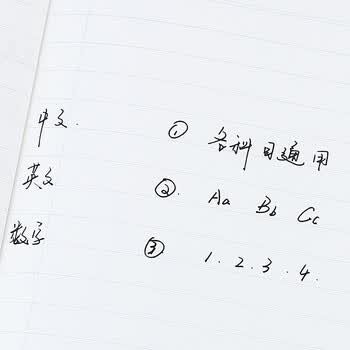 中文. ① 各科目通用
英文 ②. Aa Bb Cc
数字 ③ 1. 2. 3. 4.